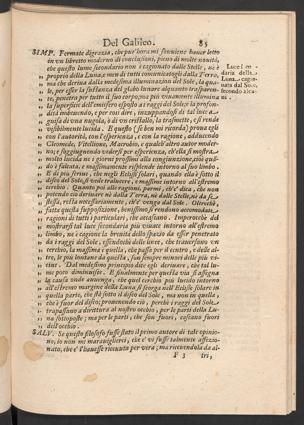 Del Galileo. 85
SIMP. Fermate digrazia, che pur'hora mi souuiene hauer letto
in vn libretto moderno di conclusioni, pieno di molte nouità,
che questo lume secondario non è cagionato dalle Stelle, nè è
proprio della Luna, e men di tutti comunicatogli dalla Terra,
ma che deriua dalla medesima illuminazion del Sole, la qua-
le, per esser la sustanza del globo lunare alquanto trasparen-
te, penetra per tutto il suo corpo; ma più viuamente illumina
la superficie dell'emisfero esposto a i raggi del Sole; e la profon-
dità imbeuendo, e per così dire, inzuppandosi di tal luce a
guisa di vna nugola, ò di vn cristallo, la trasmette, e si rende
visibilmente lucida. E questo (se ben mi ricorda) proua egli
con l'autorità, con l'esperienza, e con la ragione, adducendo
Cleomide, Vitellione, Macrobio, e qualch'altro autor moder-
no: e soggiugnendo vedersi per esperienza, ch'ella si mostra
molto lucida ne i giorni prossimi alla congiunzione,
Luce secon-
daria della
Luna cagio-
nata dal Sole,
secondo alcu-
ni.
disco del Sole,
cerchio. Quanto poi alle ragioni, parmi, ch'e' dica, che non
potendo ciò deriuare nè dalla Terra, nè dalle Stelle, nè da se
stessa, resta necessariamente, ch'e' venga dal Sole. Oltreche
fatta questa supposizione, benissimo si rendono accomodate
ragioni di tutti i particolari, che accascano. Imperoche del
mostrarsi tal luce secondaria più viuace intorno all'estremo
lembo, ne è cagione la breuità dello spazio da esser penetrato
da i raggi del Sole, essendochè delle linee, che trauersano vn
cerchio, la massima è quella, che passa per il centro, e delle al-
tre, le più lontane da questa, son sempre minori delle più vi-
cine. Dal medesimo principio dice egli deriuare, che tal lu-
me poco diminuisce. E finalmente per questa via si assegna
la causa onde auuenga, che quel cerchio più lucido intorno
all'estremo margine della Luna si scorga nell'Eclisse solare in
quella parte, che stà sotto il disco del Sole, ma non in quella,
che è fuor del disco; prouenendo ciò, perchè i raggi del Sole,
trapassano a dirittura al nostro occhio, per le parti della Lu-
na sottoposte; ma per le parti, che son fuori, cascano fuori
dell'occhio.
SALV. Se questo filosofo fusse stato il primo autore di tale opinio-
ne, io non mi marauiglierei, che e' vi fusse talmente affezio-
nato, che e' l'hauesse riceuuta per vera; ma riceuendola da al-
F 3 tri,